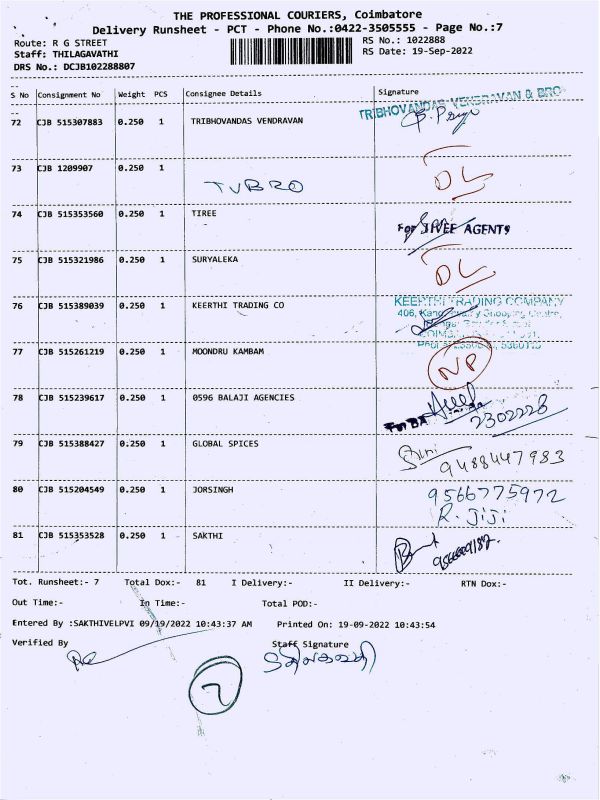 THE PROFESSIONAL COURIERS, Coimbatore
Delivery Runsheet - PCT - Phone No.:0422-3505555 - Page No.:7
Route: R G STREET
RS No.: 1022888
Staff: THILAGAVATHI
RS Date: 19-Sep-2022
DRS No.: DCJB102288807
S No Consignment No Weight PCS Consignee Details Signature
TRIBHOVANDAS VENDRAVAN & BRO
72 CJB 515307883 0.250 1 TRIBHOVANDAS VENDRAVAN B. Priya
73 CJB 1209907 0.250 1
TVBRO DL
74 CJB 515353560 0.250 1 TIREE
For TIREE AGENTS
75 CJB 515321986 0.250 1 SURYALEKA
DL
76 CJB 515389039 0.250 1 KEERTHI TRADING CO KEERTHI TRADING COMPANY
406, Shopping Centre,
77 CJB 515261219 0.250 1 MOONDRU KAMBAM
NP
78 CJB 515239617 0.250 1 0596 BALAJI AGENCIES
2302228
79 CJB 515388427 0.250 1 GLOBAL SPICES
9488447983
80 CJB 515204549 0.250 1 JORSINGH 9566775972
R. JiJi
81 CJB 515353528 0.250 1 SAKTHI
Tot. Runsheet:- 7 Total Dox:- 81 I Delivery:- II Delivery:- RTN Dox:-
Out Time:- In Time:- Total POD:-
Entered By :SAKTHIVELPVI 09/19/2022 10:43:37 AM Printed On: 19-09-2022 10:43:54
Verified By Staff Signature
7